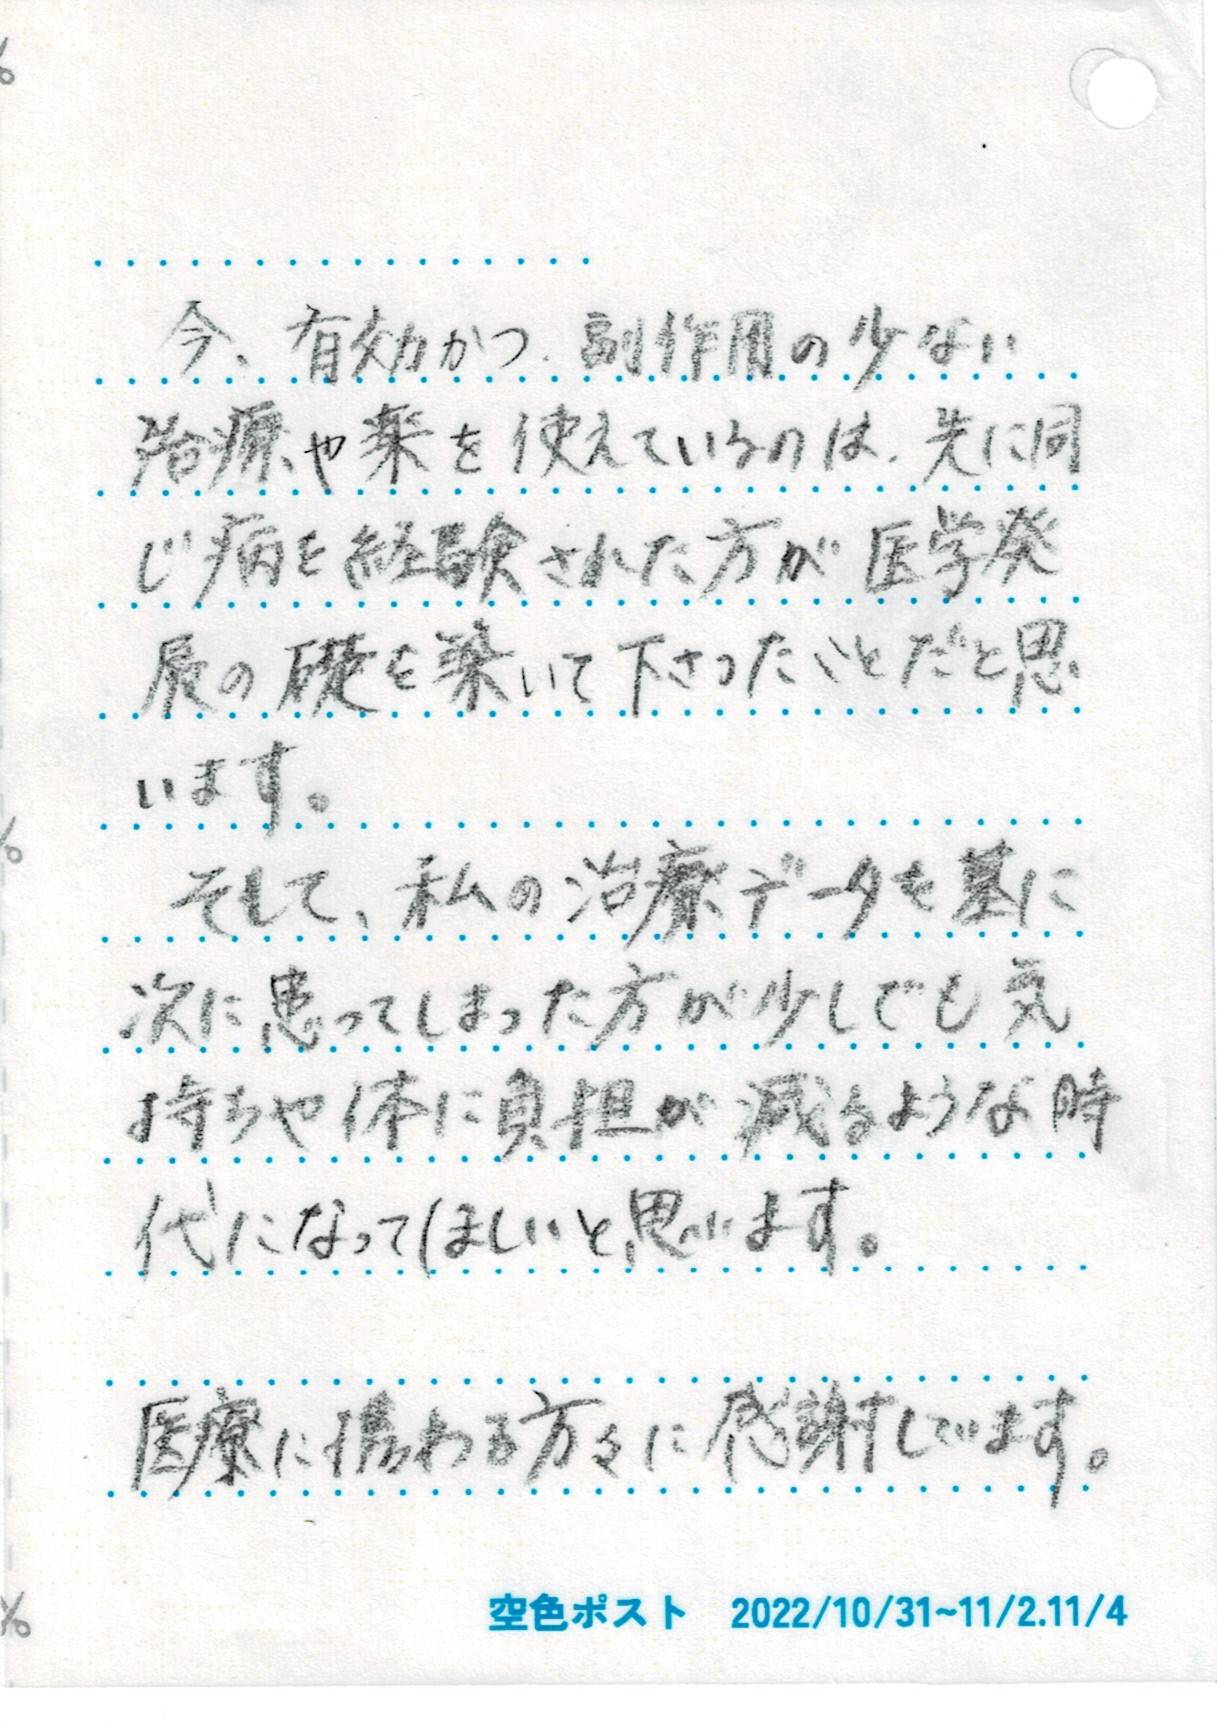 今、有効かつ、副作用の少ない
治療や薬を使えているのは、先に同
じ病を経験された方が医学発
展の礎を築いて下さったことだと思
います。
そして、私の治療データを基に
次に患ってしまった方が少しでも気
持ちや体に負担が減るような時
代になってほしいと思います。
医療に携わる方々に感謝しています。
空色ポスト 2022/10/31~11/2.11/4